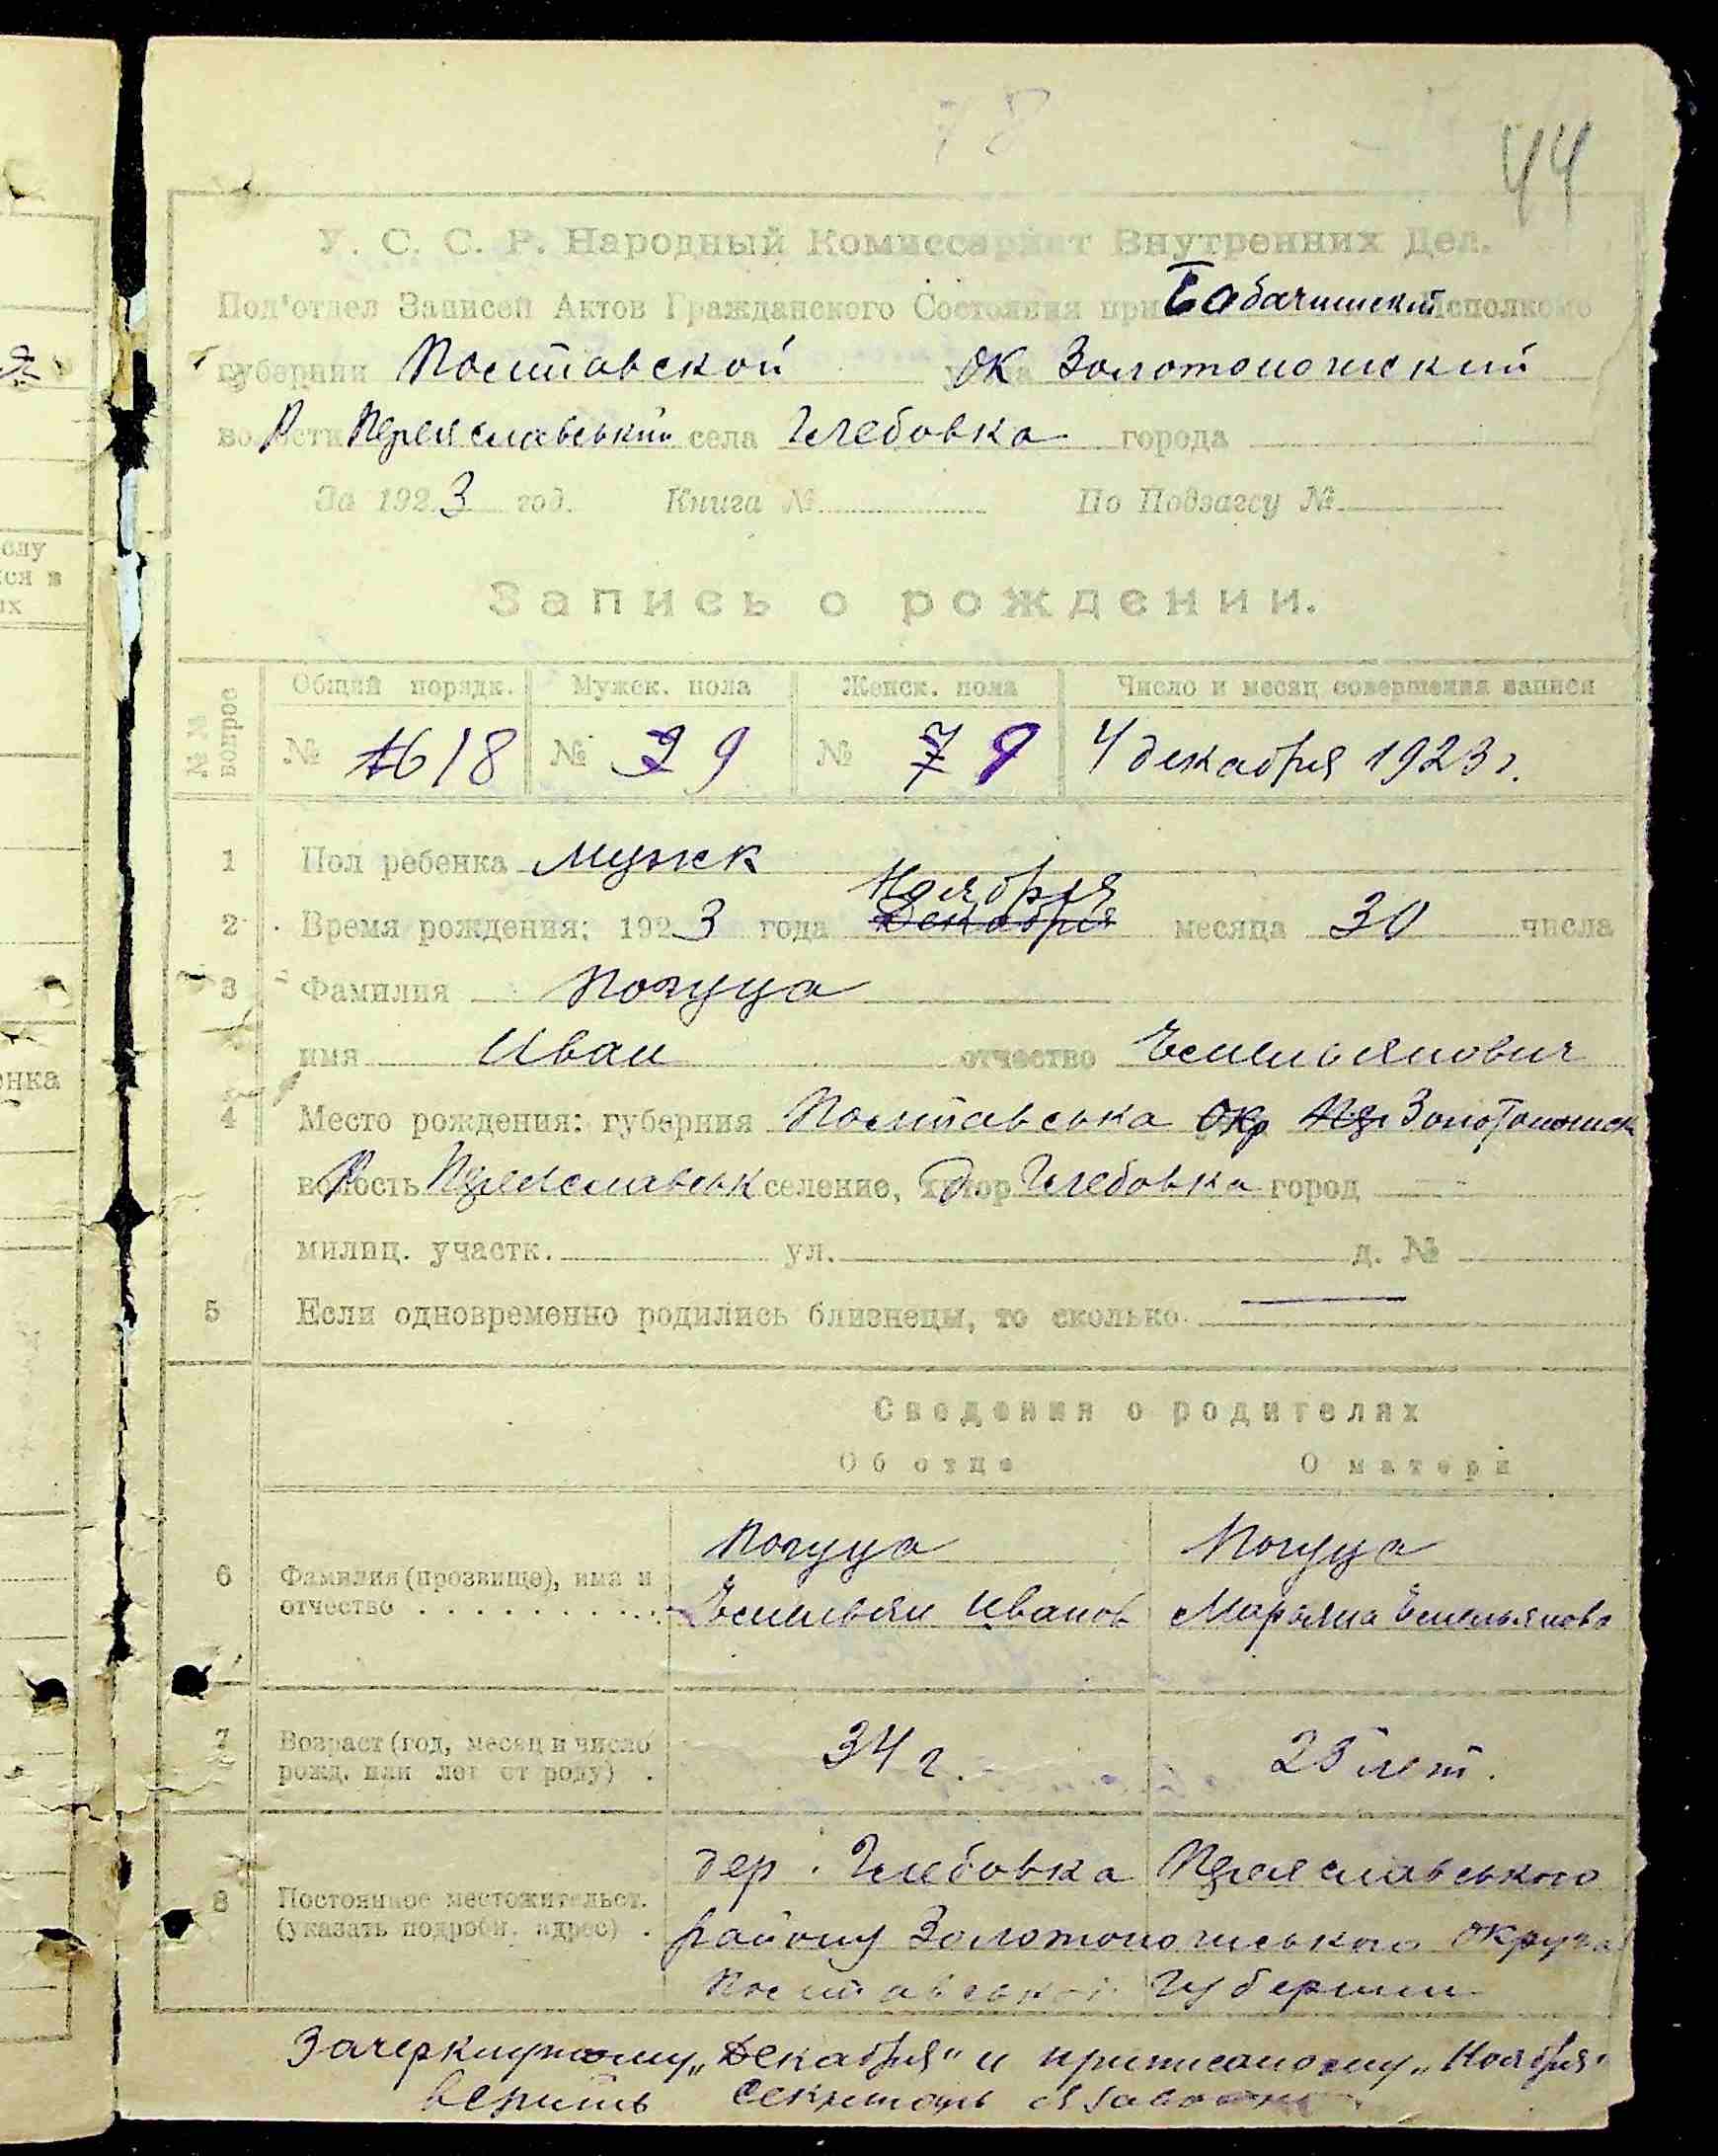 78
44
У. С. С. Р. Народный Комиссариат Внутренних Дел.
Под'отдел Записей Актов Гражданского Состояния при Исполкоме
губернии Полтавской ОК Золотоношский
волости Р Переяславський села Глебовка города
За 1923 год. Книга № По Подзагсу №
Запись о рождении.
№№ вопрос Общий порядк. Мужск. пола Женск. пола Число и месяц совершения записи
№ 1618 № 39 № 79 4 декабря 1923 г.
1 Пол ребенка мужск
Ноября
2 Время рождения: 1923 года Декабря месяца 30 числа
3 Фамилия Погуца
имя Иван отчество Емельянович
4 Место рождения: губерния Полтавська окр Золотоношск
волость Р Переяславськ селение, хутор д. Глебовка город
милиц. участк. ул. д. №
5 Если одновременно родились близнецы, то сколько
Сведения о родителях
Об отце О матери
Погуца Погуца
6 Фамилия (прозвище), имя и
отчество Емельян Иванов Марьяна Емельянова
7 Возраст (год, месяц и число
рожд. или лет от роду) 34 г. 25 лет.
дер. Глебовка Переяславського
8 Постоянное местожительст.
(указать подробн. адрес) району Золотоноського округа
Полтавської Губернии
Зачеркнутому „Декабря" и приписаному „Ноября"
верить Секретарь
енка